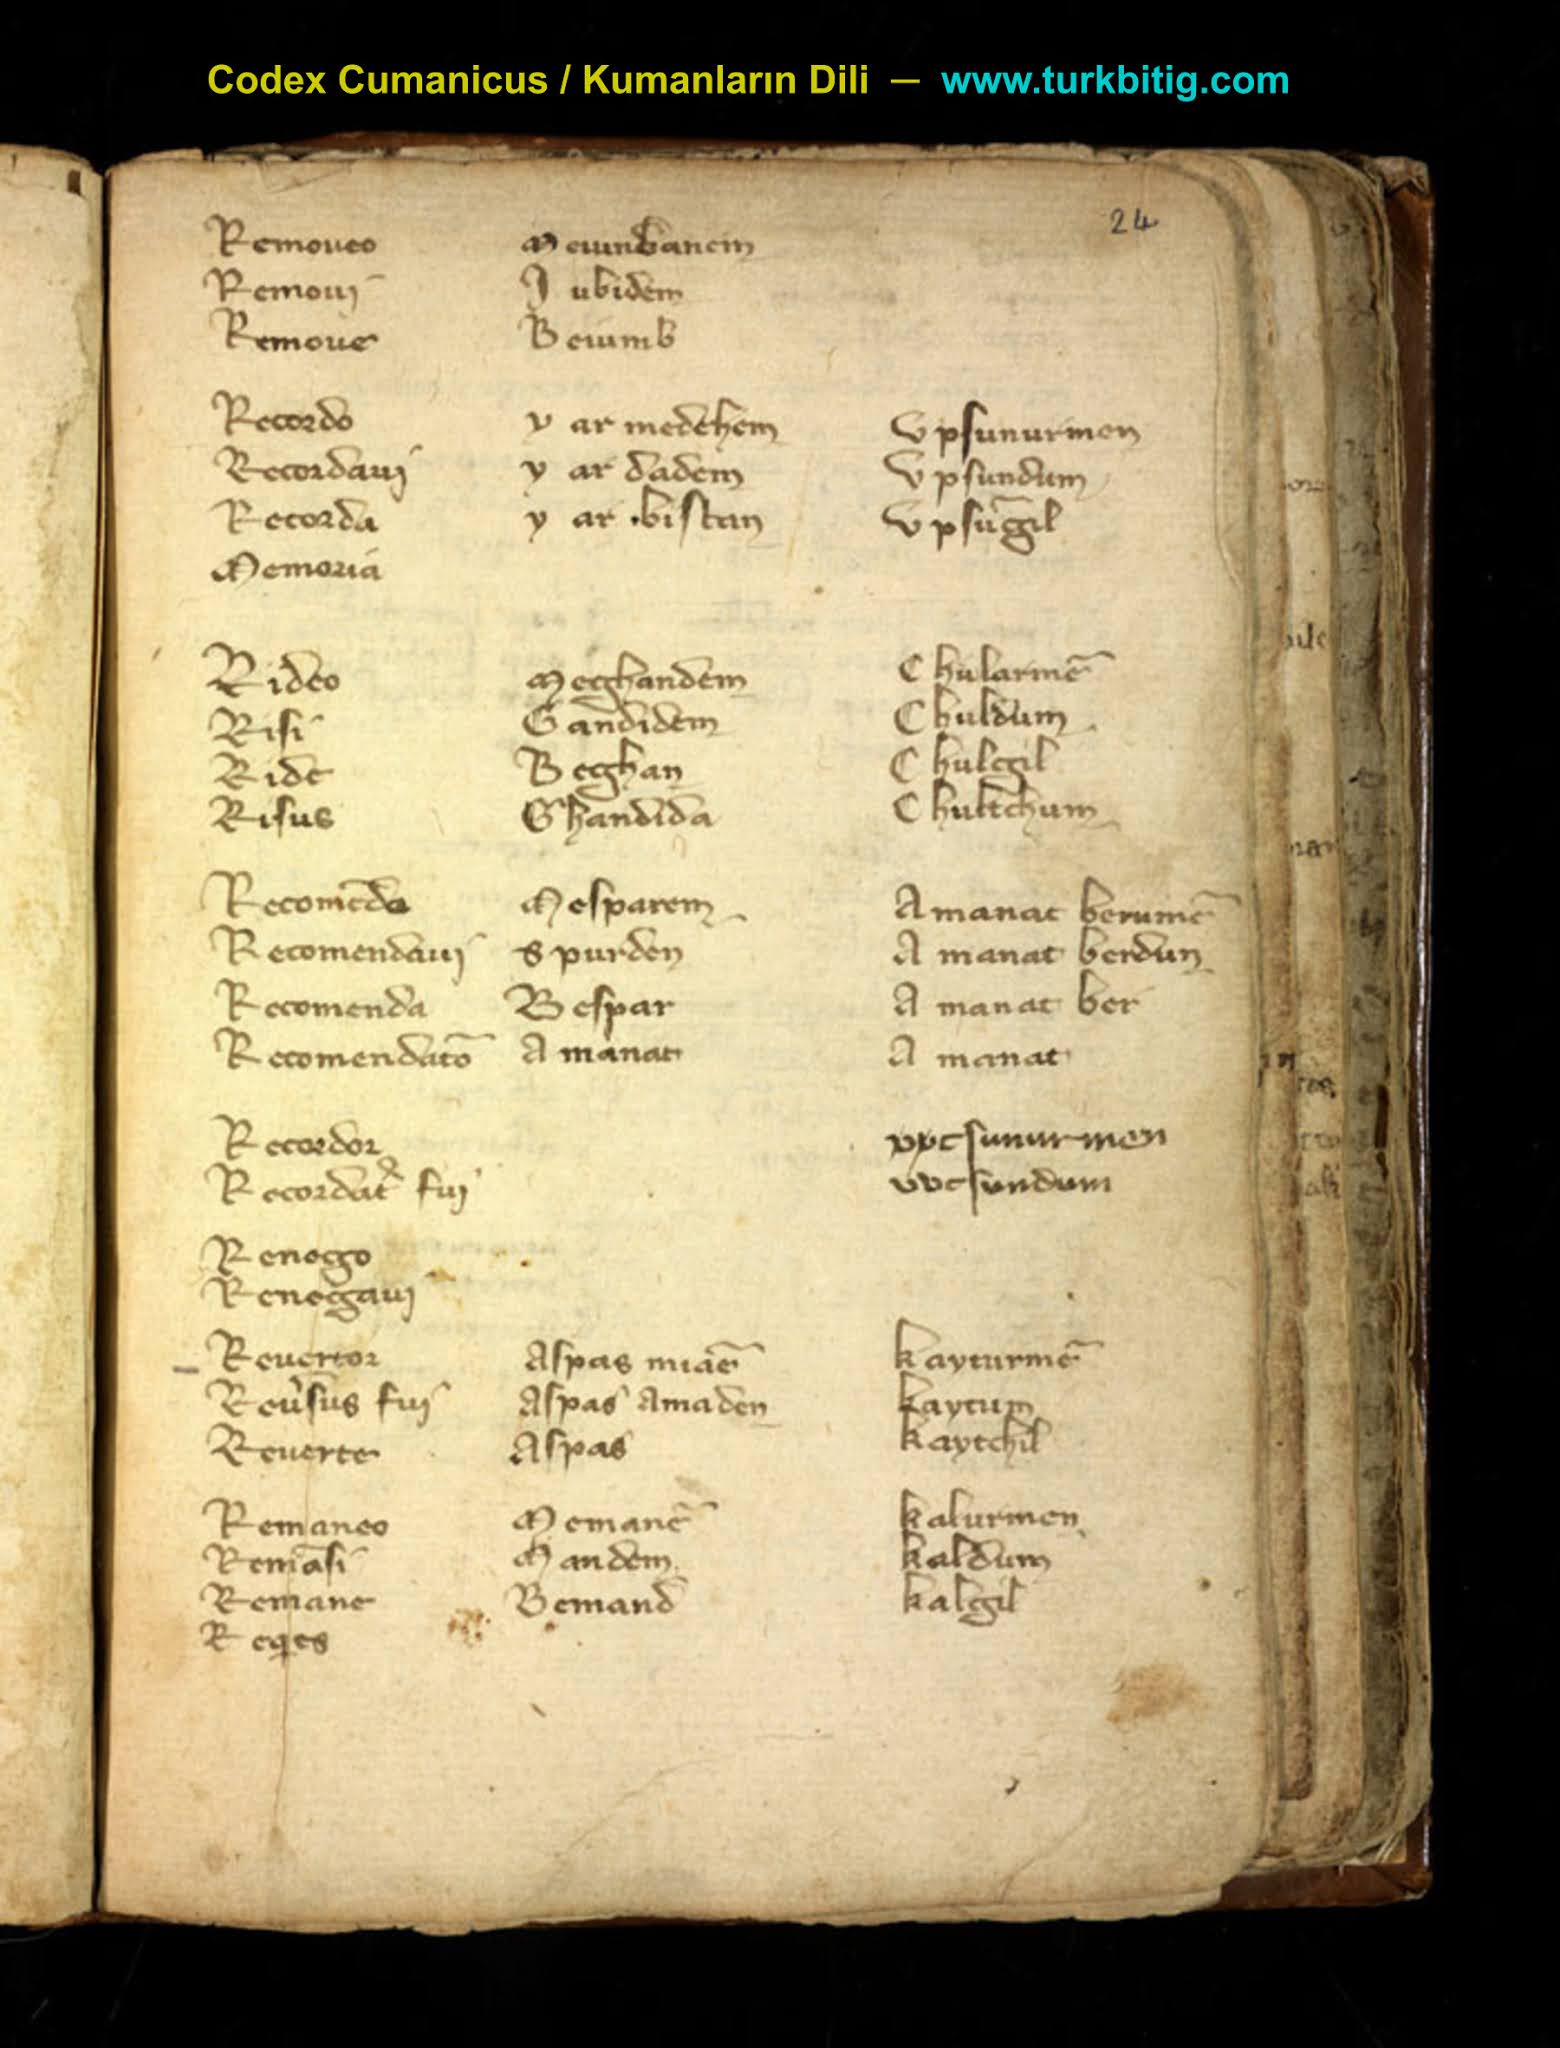 Codex Cumanicus / Kumanların Dili — www.turkbitig.com
24
Remoueo Meiunbanem
Remouj Jubidem
Remoue Beiumb
Recordo yar medehem Vpsunurmen
Recordauj yar dadem Vpsundum
Recorda yar bistan Vpsūgil
Memoria
Rideo Meghandem Chularmē
Risi Gandidem Chuldum
Ride Beghan Chulgil
Risus Ghandida Chultchum
Recomēda Mesparem Amanat berumē
Recomendauj Spurden Amanat berdun
Recomenda Bespar Amanat ber
Recomendatō Amanat Amanat
Recordor vvcsunurmen
Recordat fuj vvcsundum
Renego
Renegauj
Reuertor Aspas miaē kayturmē
Reūsus fuj Aspas Amaden kaytum
Reuerte Aspas kaytchil
Remaneo Memanē kalurmen
Remāsi Mandem kaldum
Remane Bemand kalgil